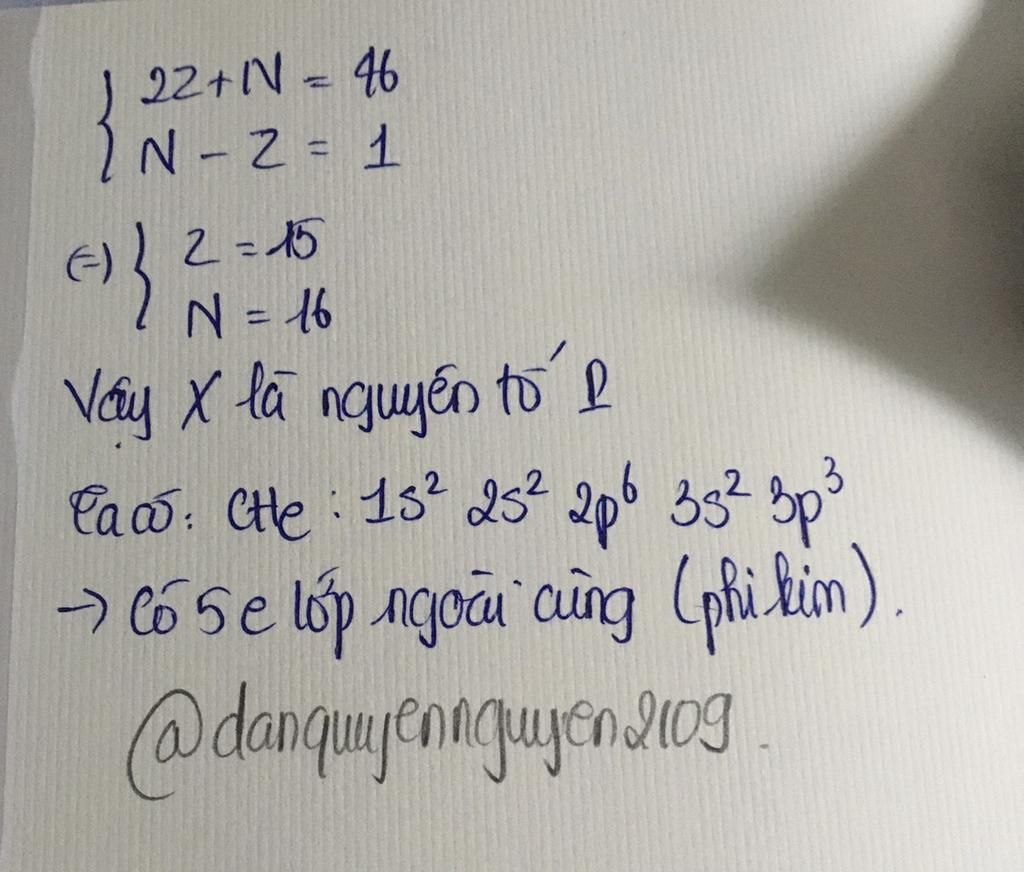 2Z + N = 46
N - Z = 1
(=) Z = 15
N = 16
Vậy X là nguyên tố P
Ta có: CHe: 1s² 2s² 2p⁶ 3s² 3p³
→ Có 5e lớp ngoài cùng (phi kim).
@danquyennguyen2109.